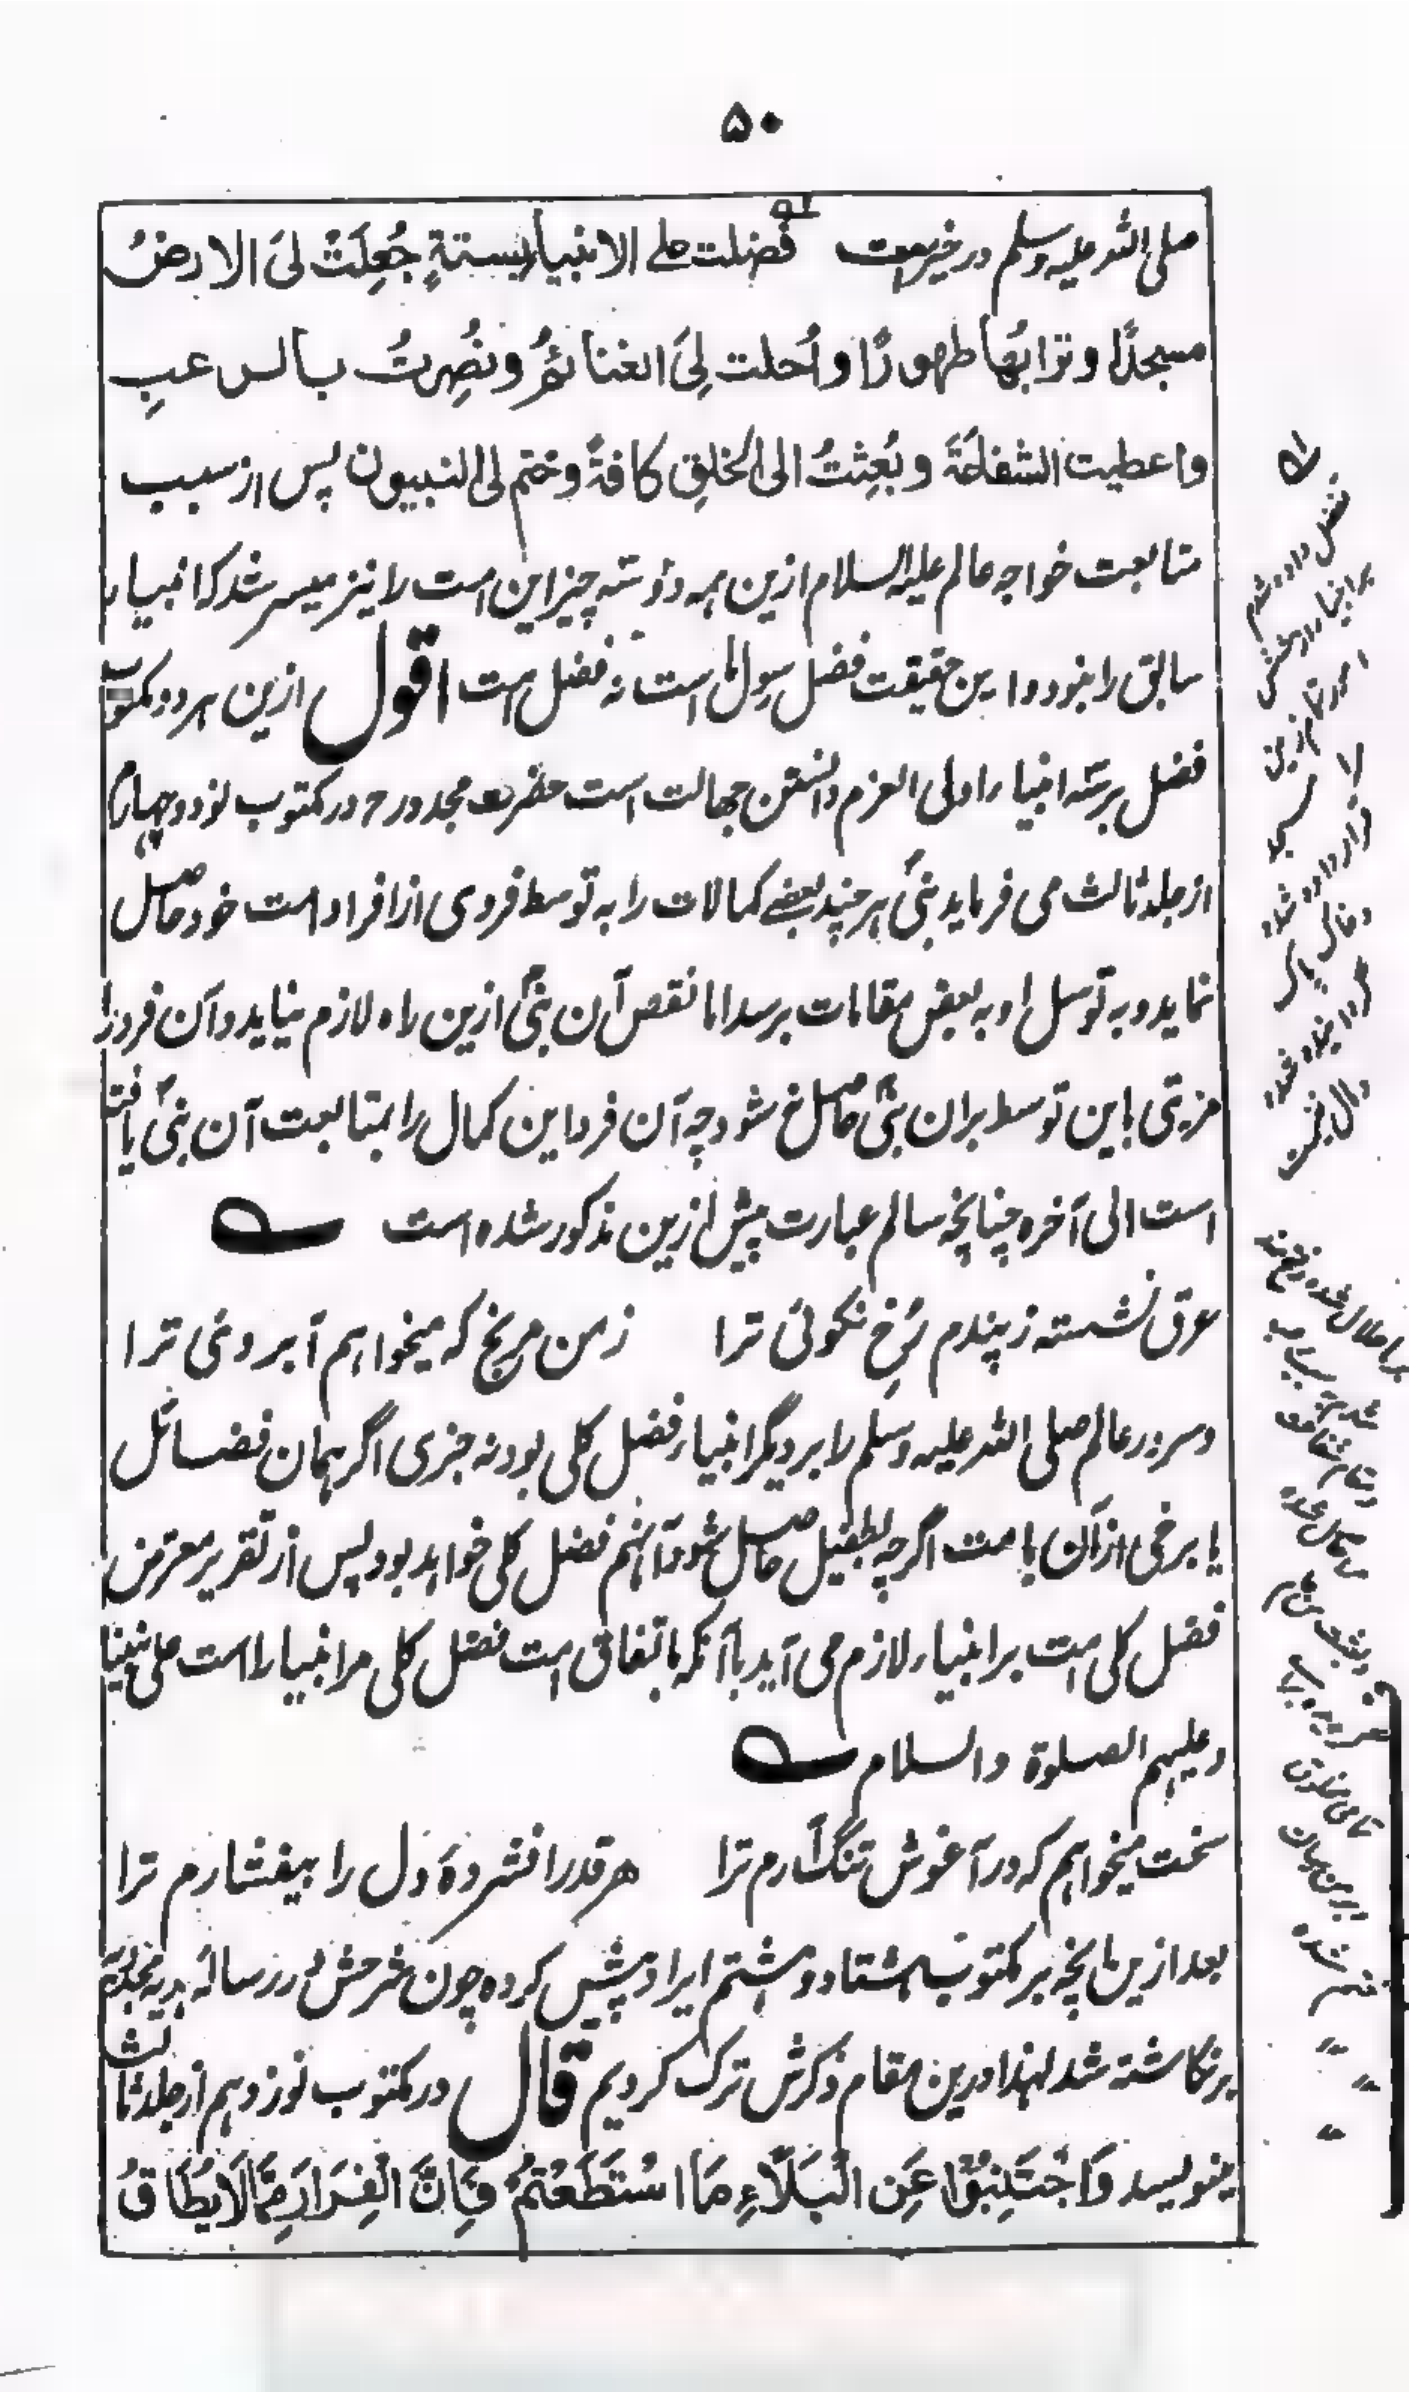 ۵۰
صلی اللہ علیہ وسلم در خیریت فضلت علے الانبیاء بستۃٍ جُعِلَتْ لیَ الارضُ
مسجدًا و ترابُھا طھورًا و اُحلت لِیَ الغنائمُ و نُصِرتُ بالرعبِ
واعطیت الشفاعۃَ و بُعِثتُ الی الخلقِ کافۃً و ختم لی النبیون پس از سبب
متابعت خواجہ عالم علیہ السلام ازین ہمہ دو سہ چیز این امت را نیز میسر شد کہ انبیاء
سابق را نبود و این حقیقت فضل رسول ما است نہ فضل امت اقول ازین ہر دو مکتوب
فضل بر سہ انبیاء اولی العزم دانستن جہالت است حضرت مجدد رح در مکتوب نود و چہارم
از جلد ثالث می فرماید نبیٔ ہر چند بعضے کمالات را بہ توسط فردی از افراد امت خود حاصل
نماید و بہ توسل او بہ بعض مقامات برسد اما نقص آن نبیٔ ازین راہ لازم نیاید و آن فرد را
مزیتی باین توسط بران نبیٔ حاصل نشود چہ آن فرد این کمال را بمتابعت آن نبیٔ یافتہ
است الی آخرہ چنانچہ سالم عبارت پیش ازین مذکور شدہ است
عرق نشستہ ز پندم رُخِ نکوئی ترا زمن مرنج کہ میخواہم آبروئی ترا
و سرور عالم صلی اللہ علیہ وسلم را بر دیگر انبیاء فضل کلی بود نہ جزی اگر ہمان فضائل
یا برخی ازان بامت اگرچہ بطفیل حاصل شود آنہم فضل کلی خواہد بود پس از تقریر معترض
فضل کلی امت بر انبیاء لازم می آید باآنکہ باتفاق امت فضل کلی مر انبیاء راست علی نبینا
و علیہم الصلوۃ والسلام
سخت میخواہم کہ در آغوش تنگ آرم ترا ہر قدر افشردۂ دل را بیفشارم ترا
بعد ازین آنچہ بر مکتوب ہشتاد و ہشتم ایراد پیش کردہ چون شرحش در رسالہ ہدیہ مجددیہ
برنگاشتہ شد لہذا درین مقام ذکرش ترک کردیم قال در مکتوب نوزدہم از جلد ثالث
مینویسد وَاجْتَنِبُوْا عَنِ الْبَلَآءِ مَا اسْتَطَعْتُمْ فَاِنَّ الْفِرَارَ مِمَّا لَا یُطَاقُ
لہ
فضل دادہ شدم
بر انبیاء
زمین
مسجد
قرار دادہ شدہ
و خاک پاک
گردانیدہ شدہ
حلال شدہ
شفاعت
تمامی مخلوق